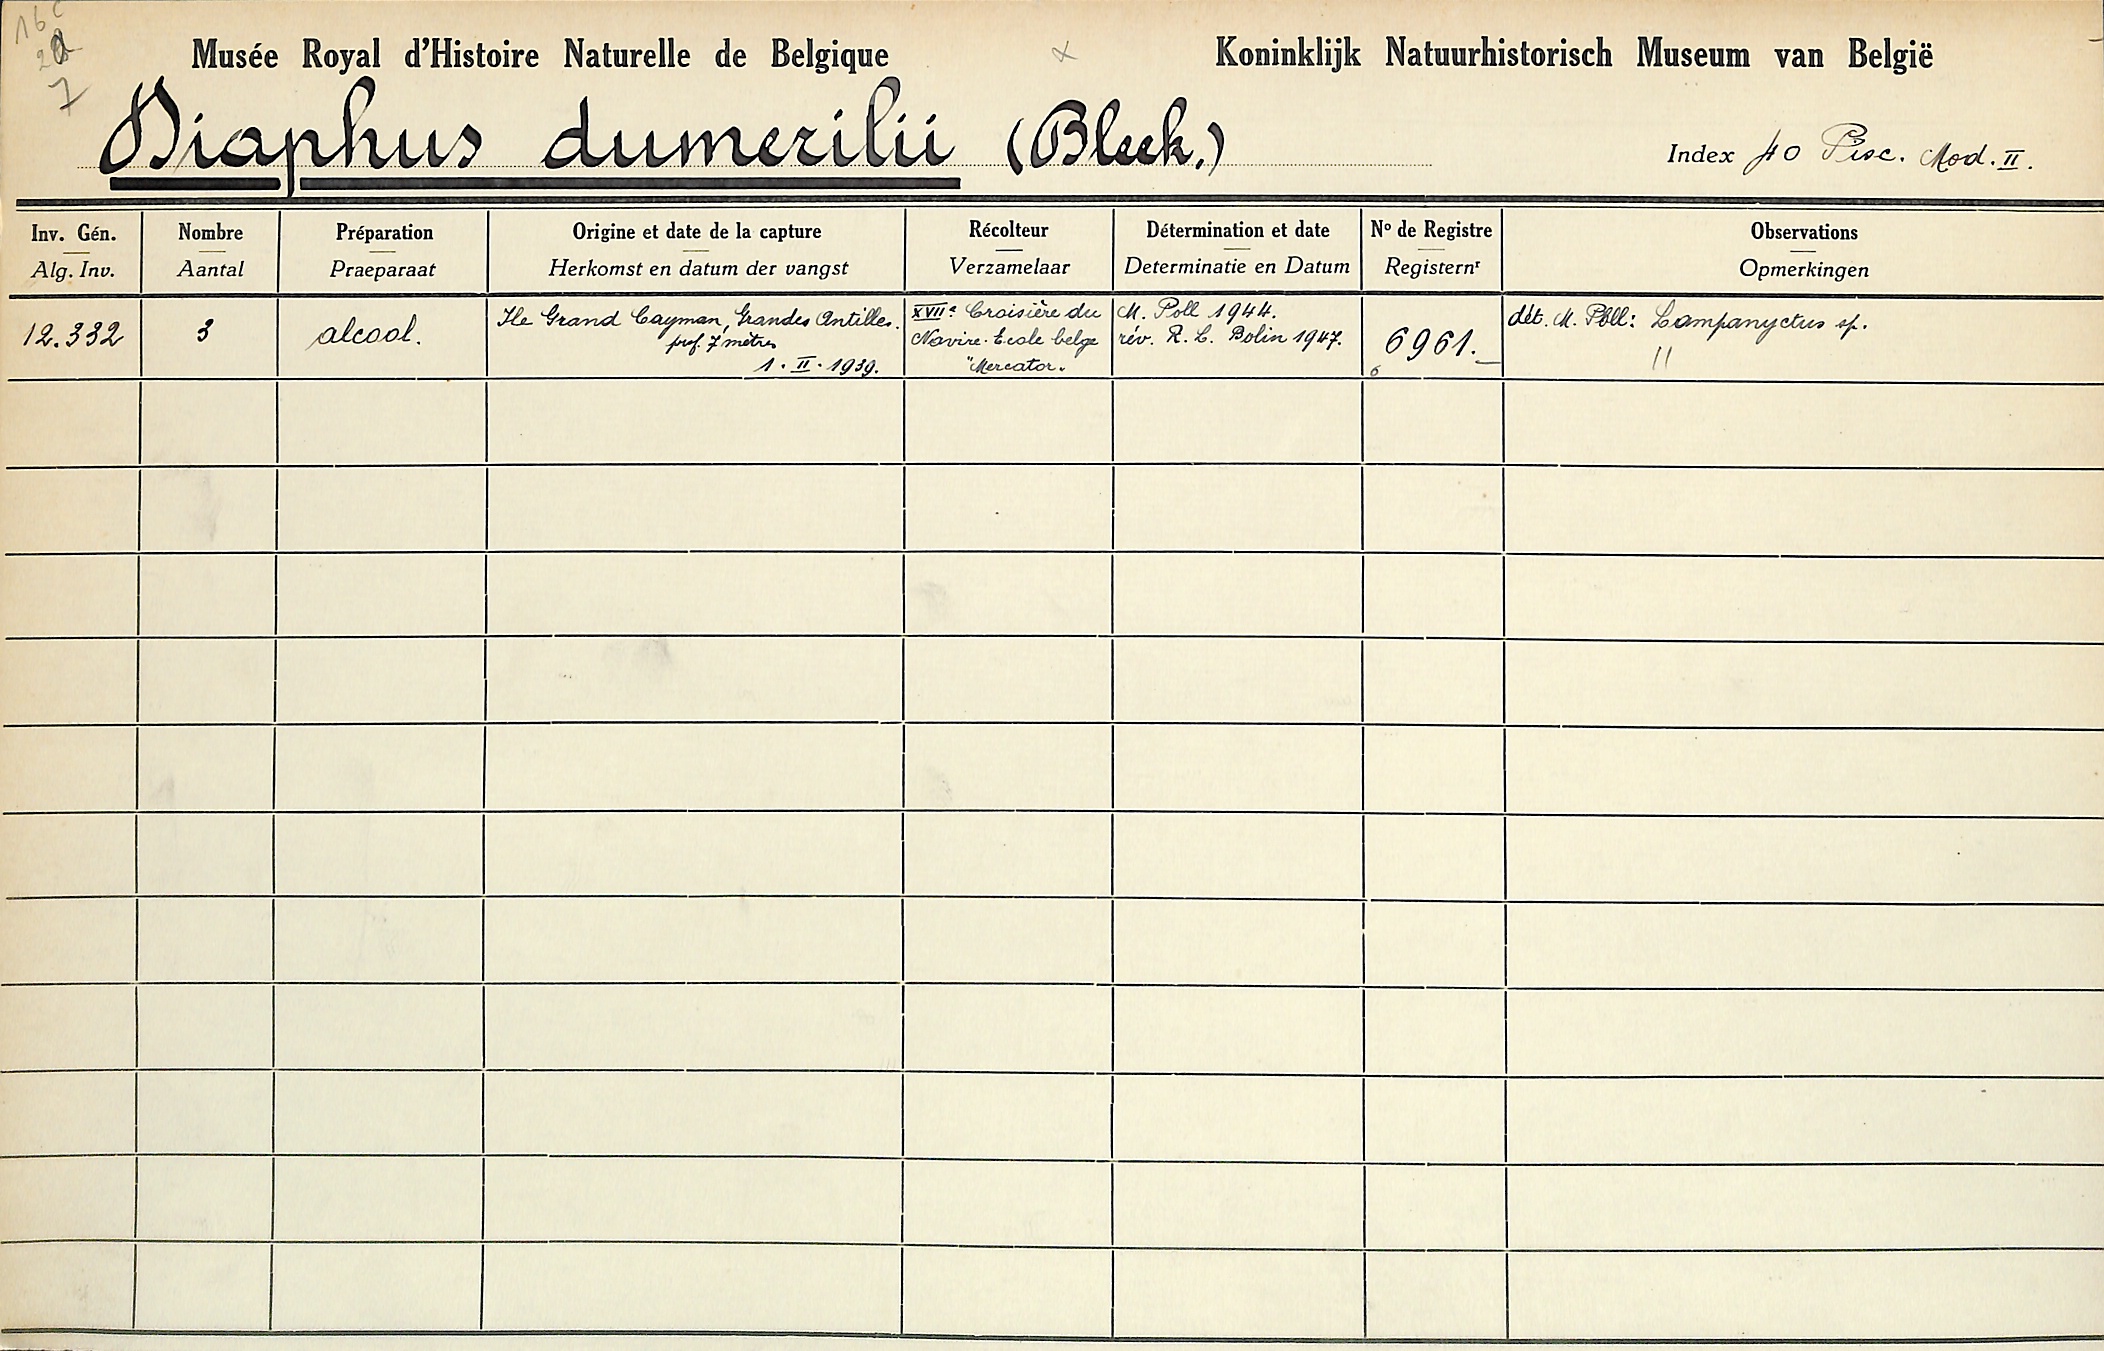 16c
7
Musée Royal d'Histoire Naturelle de Belgique
Koninklijk Natuurhistorisch Museum van België
Diaphus dumerilii (Bleek.)
Index 40 Pisc. Mod. II.
Inv. Gén.
Alg. Inv.
Nombre
Aantal
Préparation
Praeparaat
Origine et date de la capture
Herkomst en datum der vangst
Récolteur
Verzamelaar
Détermination et date
Determinatie en Datum
Nº de Registre
Registernʳ
Observations
Opmerkingen
12.332
3
alcool.
Ile Grand Cayman, Grandes Antilles.
prof. 7 mètres
1. II. 1939.
XVIIᵉ Croisière du
Navire-Ecole belge
"Mercator.
M. Poll 1944.
rév. R. L. Bolin 1947.
6961.
6
dét. M. Poll: Lampanyctus sp.